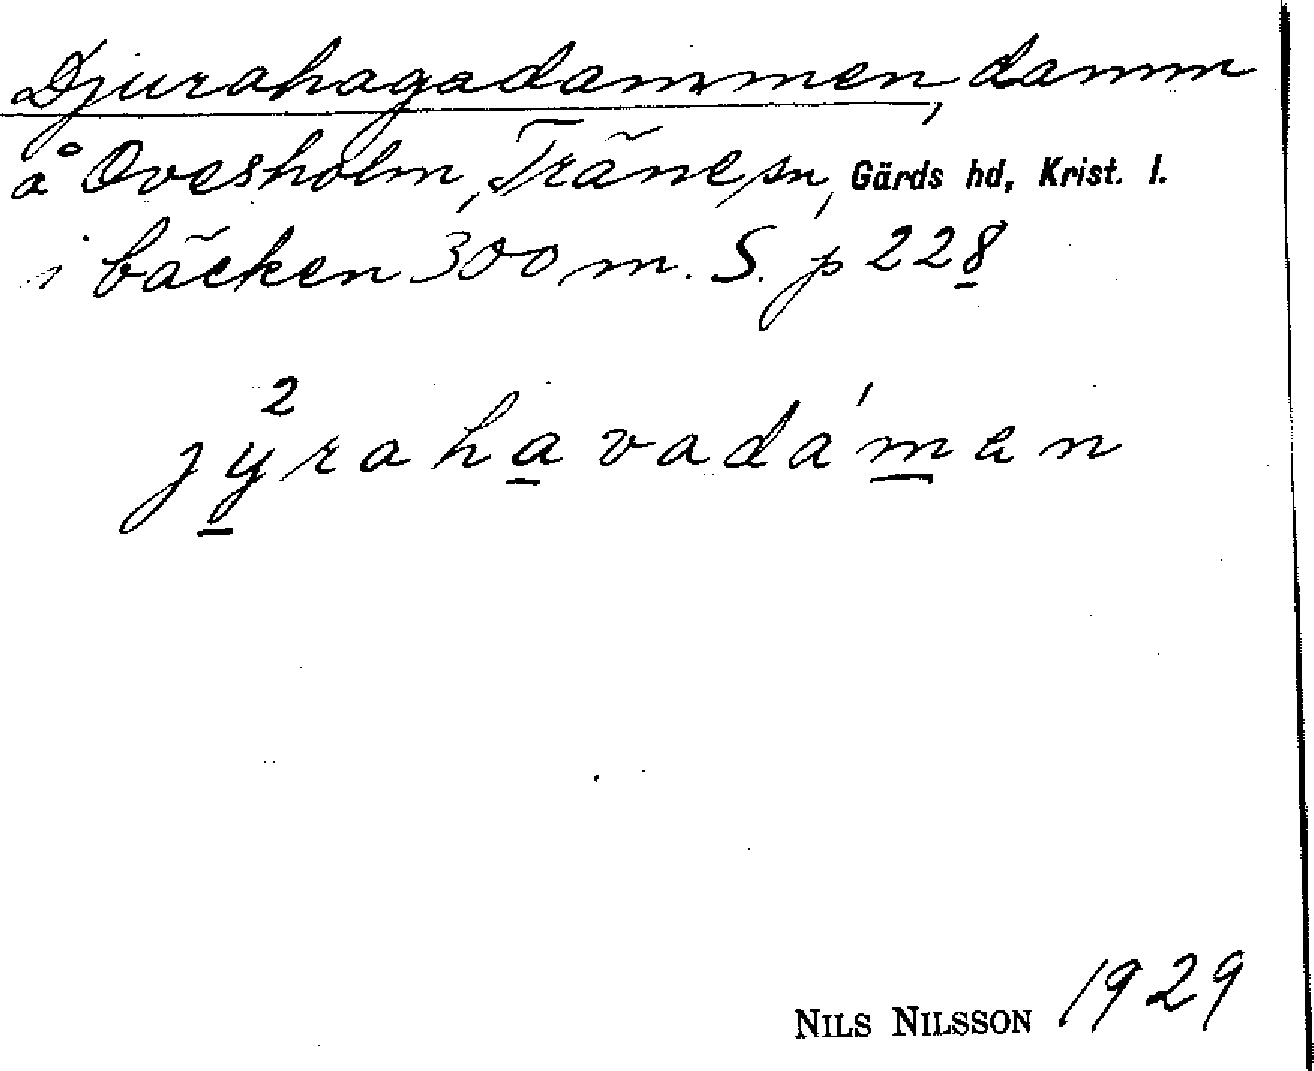 Djurahagadammen, damm
å Ovesholm, Träne sn, Gärds hd, Krist. l.
i bäcken 300 m. S. p 228
2
jyrahavadámen
NILS NILSSON 1929